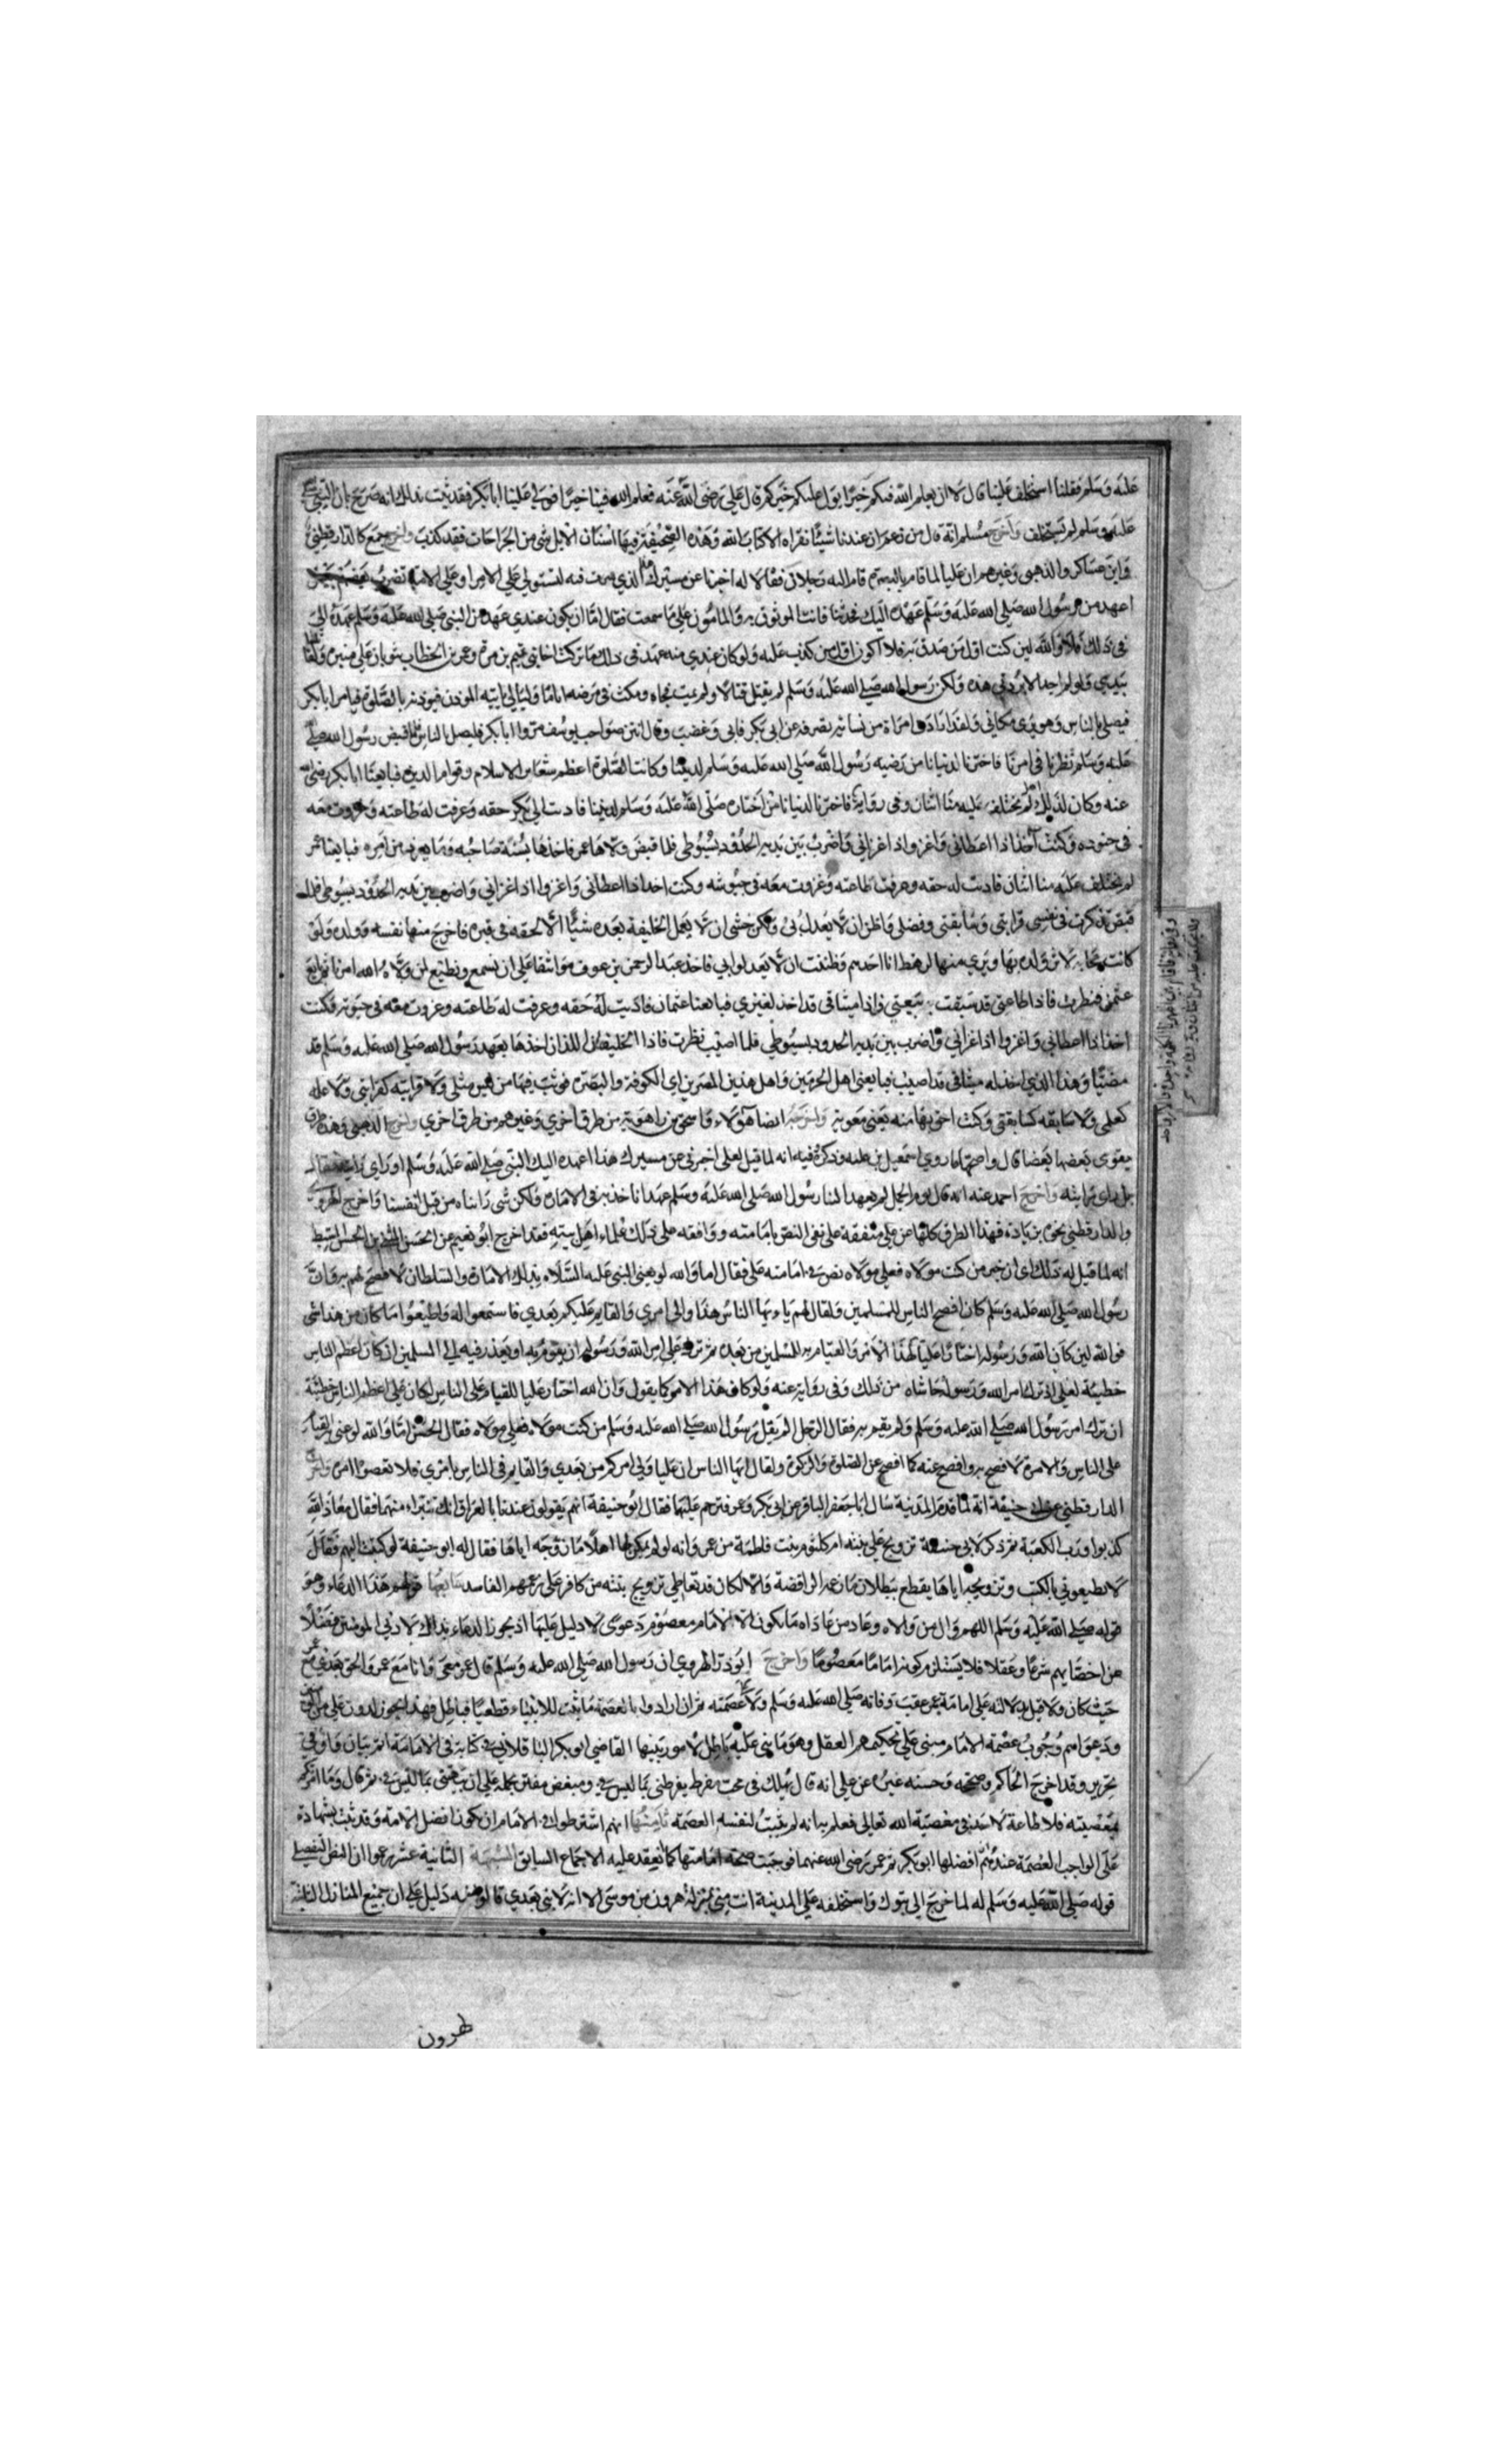 عليه وسلم فقلنا استخلف علينا قال لا ان يعلم الله فيكم خيرا يول عليكم خيركم قال علي رضي الله عنه فعلم الله فينا خيرا فولي علينا ابا بكر فقد ثبت بذلك انه صرح بان النبي صلي
عليه وسلم لم يستخلف واخرج مسلم انه قال من زعم ان عندنا شيئا نقراه الا كتاب الله وهذه الصحيفة فيها اسنان الابل وشي من الجراحات فقد كذب واخرج جمع كالدارقطني
وابن عساكر والذهبي وغيرهم ان عليا لما قام بالبصرة قام اليه رجلان فقالا له اخبرنا عن مسيرك هذا الذي سرت فيه لتستولي علي الامرا وعلي الامة تضرب بعضهم ببعض
اعهد من رسول الله صلي الله عليه وسلم عهده اليك فحدثنا فانت الموثوق به والمامون علي ما سمعت فقال اما ان يكون عندي عهد من النبي صلي الله عليه وسلم عهده الي
في ذلك فلا والله لين كنت اول من صدق به فلا اكون اول من كذب عليه ولو كان عندي منه عهد في ذلك ما تركت اخا بني تيم بن مرة وعمر بن الخطاب يثوبان علي منبره ولقاتلتهما
بيدي ولو لم اجد الا بردتي هذه ولكن رسول الله صلي الله عليه وسلم لم يقتل قتلا ولم يمت فجاه ومكث في مرضه اياما وليالي ياتيه الموذن فيوذنه بالصلوة فيامر ابا بكر
فيصلي بالناس وهو يري مكاني ولقد ارادت امراة من نسائه تصرفه عن ابي بكر فابي وغضب وقال انتن صواحب يوسف مروا ابا بكر فليصل بالناس فلما قبض رسول الله صلي
عليه وسلم نظرنا في امرنا فاخترنا لدنيانا من رضيه رسول الله صلي الله عليه وسلم لديننا وكانت الصلوة اعظم شعاير الاسلام وقوام الدين فبايعنا ابا بكر رضي الله
عنه وكان لذلك اهلا لم يختلف عليه منا اثنان وفي رواية فاخترنا لدنيانا من اختاره صلي الله عليه وسلم لديننا فاديت الي ابي بكر حقه وعرفت له طاعته وغزوت معه
في جنوده وكنت آخذ اذا اعطاني واغزو اذا اغزاني واضرب بين يديه الحدود بسوطي فلما قبض ولاها عمر فاخذها بسنة صاحبه وما يعرف من امره فبايعنا عمر
لم يختلف عليه منا اثنان فاديت له حقه وعرفت طاعته وغزوت معه في جيوشه وكنت اخذ اذا اعطاني واغزوا اذا اغزاني واضرب بين يديه الحدود بسوطي فلما
قبض تذكرت في نفسي قرابتي وسابقتي وفضلي واظن ان لا يعدل بي ولكن خشي ان لا يعمل الخليفة بعده شيئا الا لحقه في قبره فاخرج منها نفسه وولده ولو
كانت محاباة لاثر ولده بها وبري منها لرهط انا احدهم وظننت ان لا يعدلوا بي فاخذ عبد الرحمن بن عوف مواثقنا علي ان نسمع ونطيع لمن ولاه الله امرنا ثم بايع
عثمن فنظرت فاذا طاعتي قد سبقت بيعتي واذا ميثاقي قد اخذ لغيري فبايعنا عثمان فاديت له حقه وعرفت له طاعته وغزوت معه في جيوشه وكنت
اخذ اذا اعطاني واغزوا اذا اغزاني واضرب بين يديه الحدود بسوطي فلما اصيب نظرت فاذا الخليفتان اللذان اخذها بعهد رسول الله صلي الله عليه وسلم قد
مضيا وهذا الذي اخذ له ميثاقي قد اصيب فبايعني اهل الحرمين واهل هذين المصرين اي الكوفة والبصرة فوثب فيها من ليس مثلي ولا قرابته كقرابتي ولا علمه
كعلمي ولا سابقته كسابقتي وكنت احق بها منه يعني معوية واخرجه ايضا هؤلاء واسحق بن راهوية من طرق اخري وغيرهم من طرق اخري واخرج الذهبي وهذه طرق
يقوي بعضها بعضا قال واصحها ما روي اسمعيل بن علية وذكره وفيه انه لما قيل لعلي اخبرني عن مسيرك هذا اعهده اليك النبي صلي الله عليه وسلم او راي رايته فقال
بل راي رايته واخرج احمد عنه انه قال يوم الجمل لم يعهد الينا رسول الله صلي الله عليه وسلم عهدا ناخذ به في الامارة ولكن شي رايناه من قبل انفسنا واخرج الهروي
والدارقطني نحوه بزيادة فهذه الطرق كلها عن علي متفقة علي نفي النص بامامته ووافقه علي ذلك علماء اهل بيته فقد اخرج ابو نعيم عن الحسن المثني بن الحسن السبط
انه لما قيل له ذلك اي ان خبر من كنت مولاه فعلي مولاه نص في امامته علي فقال اما والله لو يعني النبي عليه السلام بذلك الامارة والسلطان لا فصح لهم به فان
رسول الله صلي الله عليه وسلم كان افصح الناس للمسلمين ولقال لهم يا ايها الناس هذا والي امري والقايم عليكم بعدي فاستمعوا له واطيعوا ما كان من هذا شي
فوالله لين كان الله ورسوله اختارا عليا لهذا الامر والقيام به للمسلمين من بعده ثم ترك علي امر الله ورسوله ان يقوم به او يعذر فيه الي المسلمين ان كان اعظم الناس
خطيئة لعلي اذ ترك امر الله ورسوله حاشاه من ذلك وفي رواية عنه ولو كان هذا الامر كما يقول وان الله اختار عليا للقيام علي الناس لكان علي اعظم الناس خطيئة
ان ترك امر رسول الله صلي الله عليه وسلم ولم يقم به فقال الرجل الم يقل رسول الله صلي الله عليه وسلم من كنت مولاه فعلي مولاه فقال الحسن اما والله لو عني به القيام
علي الناس والامرة لا فصح به وافصح عنه كما افصح عن الصلوة والزكوة ولقال ايها الناس ان عليا ولي امركم من بعدي والقايم في الناس بامري فلا تعصوا امره واخرج
الدارقطني عن ابي حنيفة انه لما قدم المدينة سال ابا جعفر الباقر عن ابي بكر وعمر فترحم عليهما فقال ابو حنيفة انهم يقولون عندنا بالعراق انك تتبراء منهما فقال معاذ الله
كذبوا ورب الكعبة ثم ذكر لابي حنيفة تزويج علي بنته ام كلثوم بنت فاطمة من عمر وانه لو لم يكن لها اهلا ما زوجه اياها فقال له ابو حنيفة لو كتبت اليهم فقال
لا يطيعوني بالكتب وتزويجه اياها يقطع ببطلان ما زعم الرافضة والا لكان قد تعاطي تزويج بنته من كافر علي زعمهم الفاسد سابعها قولهم هذا الدعاء وهو
قوله صلي الله عليه وسلم اللهم وال من والاه وعاد من عاداه ما يكون الا لامام معصوم دعوي لا دليل عليها اذ يجوز الدعاء بذلك لا دني المومنين فضلا
عن اخصايهم شرعا وعقلا فلا يستلزم كونه اماما معصوما واخرج ابو ذر الهروي ان رسول الله صلي الله عليه وسلم قال عمر معي وانا مع عمر والحق بعدي مع عمر
حيث كان ولا قيل بدلالته علي امامة عمر عقب وفاته صلي الله عليه وسلم ولا علي عصمته ثم ان ارادوا بالعصمة ما يثبت للانبياء قطعيا فباطل
ودعواهم وجوب عصمة الامام مبني علي تحكيمهم العقل وهو وما بني عليه باطل لامور بينها القاضي ابو بكر الباقلاني في كتابه في الامامة اتم بيان واوفي
تحرير وقد اخرج الحاكم وصححه وحسنه غيره عن علي انه قال يهلك في محب مفرط يقرظني بما ليس في ومبغض مفتر يحمله علي ان يبهتني بما ليس في ثم قال وما امرتكم
بمعصيته فلا طاعة لاحد في معصية الله تعالي فعلم به انه لم يثبت لنفسه العصمة ثامنها انهم اشترطوا في الامام ان يكون افضل الامة وقد ثبت بشهادة
علي الواجب العصمة عندهم ان افضلها ابو بكر ثم عمر رضي الله عنهما فوجبت صحة امامتهما كما انعقد عليه الاجماع السابق الشبهة الثانية عشر زعموا ان النص التفصيلي
قوله صلي الله عليه وسلم له لما خرج الي تبوك واستخلفه علي المدينة انت مني بمنزلة هرون من موسي الا انه لا نبي بعدي قالوا ففيه دليل علي ان جميع المنازل الثابتة